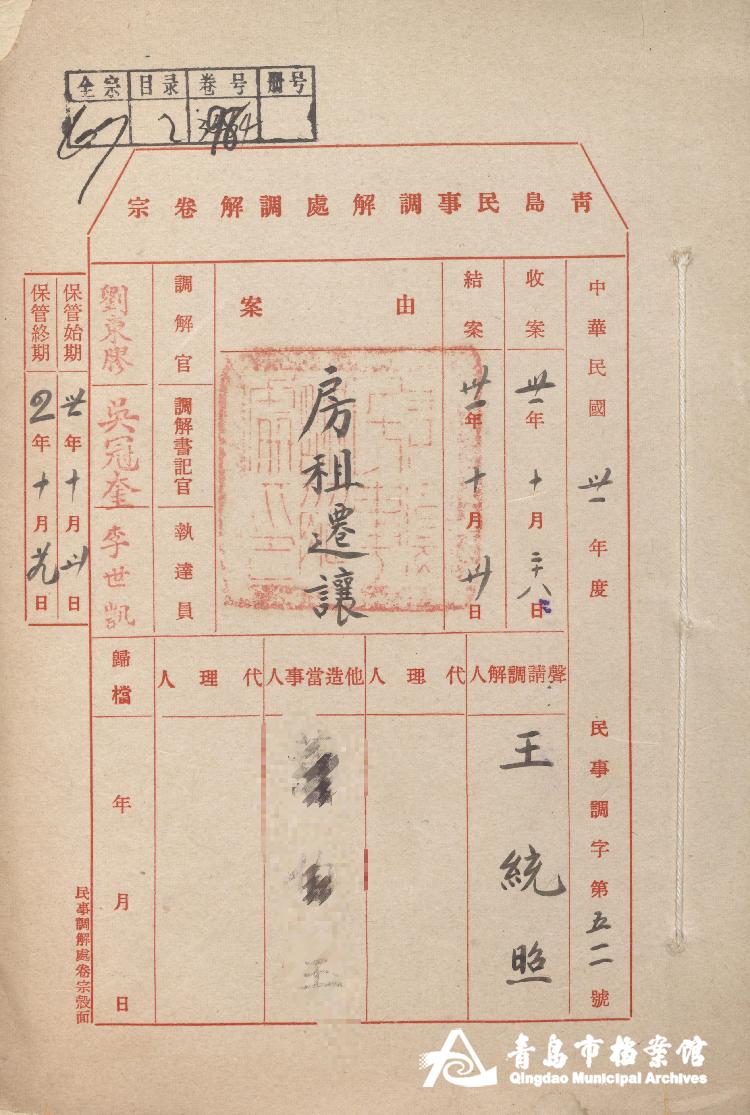 全宗 目录 卷号 册号
2
青島民事調解處調解卷宗
中華民國卅一年度 民事調字第五二號
收案 卅一年十月二十八日
結案 卅一年十月卅日
案由
房租遷讓
調解官 劉東膠
調解書記官 吳冠奎
執達員 李世凱
聲請調解人 王統照
代理人
他造當事人
代理人
歸檔 年 月 日
保管始期 卅年十月卅日
保管終期 2年十月九日
民事調解處卷宗殼面
青岛市档案馆
Qingdao Municipal Archives